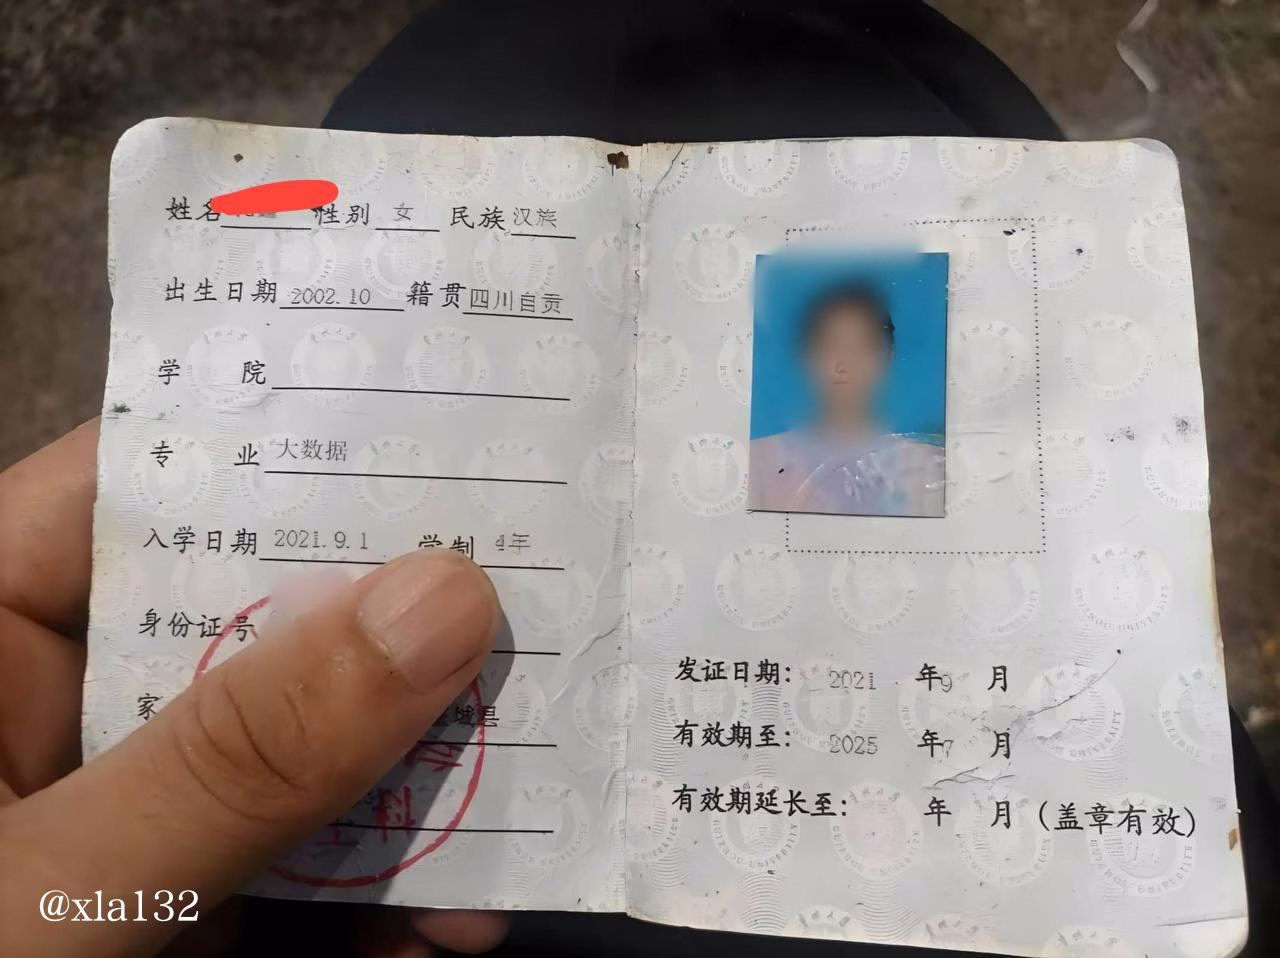 姓名 性别 女 民族 汉族
出生日期 2002.10 籍贯 四川自贡
学 院
专 业 大数据
入学日期 2021.9.1 学制 4年
身份证号
家
县
发证日期： 2021 年9 月
有效期至： 2025 年7 月
有效期延长至： 年 月（盖章有效）
@xla132